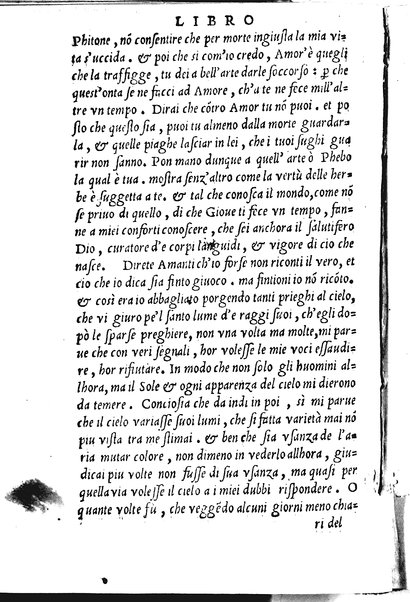 LIBRO
Phitone, nō consentire che per morte ingiusta la mia vi-
ta s'uccida. & poi che si com'io credo, Amor'è quegli
che la traffigge, tu dei a bell'arte darle soccorso: p̱ che
quest'onta se ne facci ad Amore, ch'a te ne fece mill'al-
tre vn tempo. Dirai che cōtro Amor tu nō puoi. et po
sto che questo sia, puoi tu almeno dalla morte guardar-
la, & quelle piaghe lasciar in lei, che i tuoi sughi gua
rir non sanno. Pon mano dunque a quell'arte ò Phebo
la qual è tua. mostra senz'altro come la vertù delle her-
be è suggetta a te. & tal che conosca il mondo, come nō
se priuo di quello, di che Gioue ti fece vn tempo, fan-
ne a miei conforti conoscere, che sei anchora il salutifero
Dio, curatore d'e corpi lāguidi, & vigore di cio che
nasce. Direte Amanti ch'io forse non riconti il vero, et
cio che io dica sia finto giuoco. ma fintioni io nō ricōto.
& così era io abbagliato porgendo tanti prieghi al cielo,
che vi giuro pe'l santo lume d'e raggi suoi, ch'egli do-
pò le sparse preghiere, non vna volta ma molte, mi par-
ue che con veri segnali, hor volesse le mie voci essaudi-
re, hor rifiutare. In modo che non solo gli huomini al-
lhora, ma il Sole & ogni apparenza del cielo mi dierono
da temere. Conciosia che da indi in poi, sì mi parue
che il cielo variasse suoi lumi, che sì fatta varietà mai nō
piu vista tra me stimai. & ben che sia vsanza de l'a-
ria mutar colore, non dimeno in vederlo allhora, giu-
dicai piu volte non fusse di sua vsanza, ma quasi per
quella via volesse il cielo a i miei dubbi rispondere. O
quante volte fù, che veggēdo alcuni giorni meno chia-
ri del